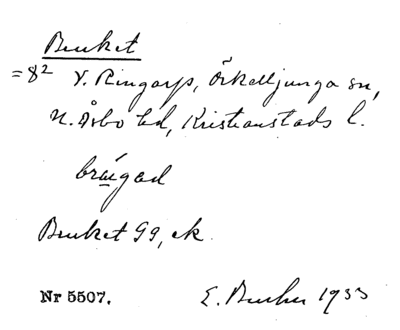 Bruket
= 8² V. Ringarp, Örkelljunga sn,
N. Åsbo hd, Kristianstads l.
Bruket Gg, ek.
Nr 5507.
E. 1933